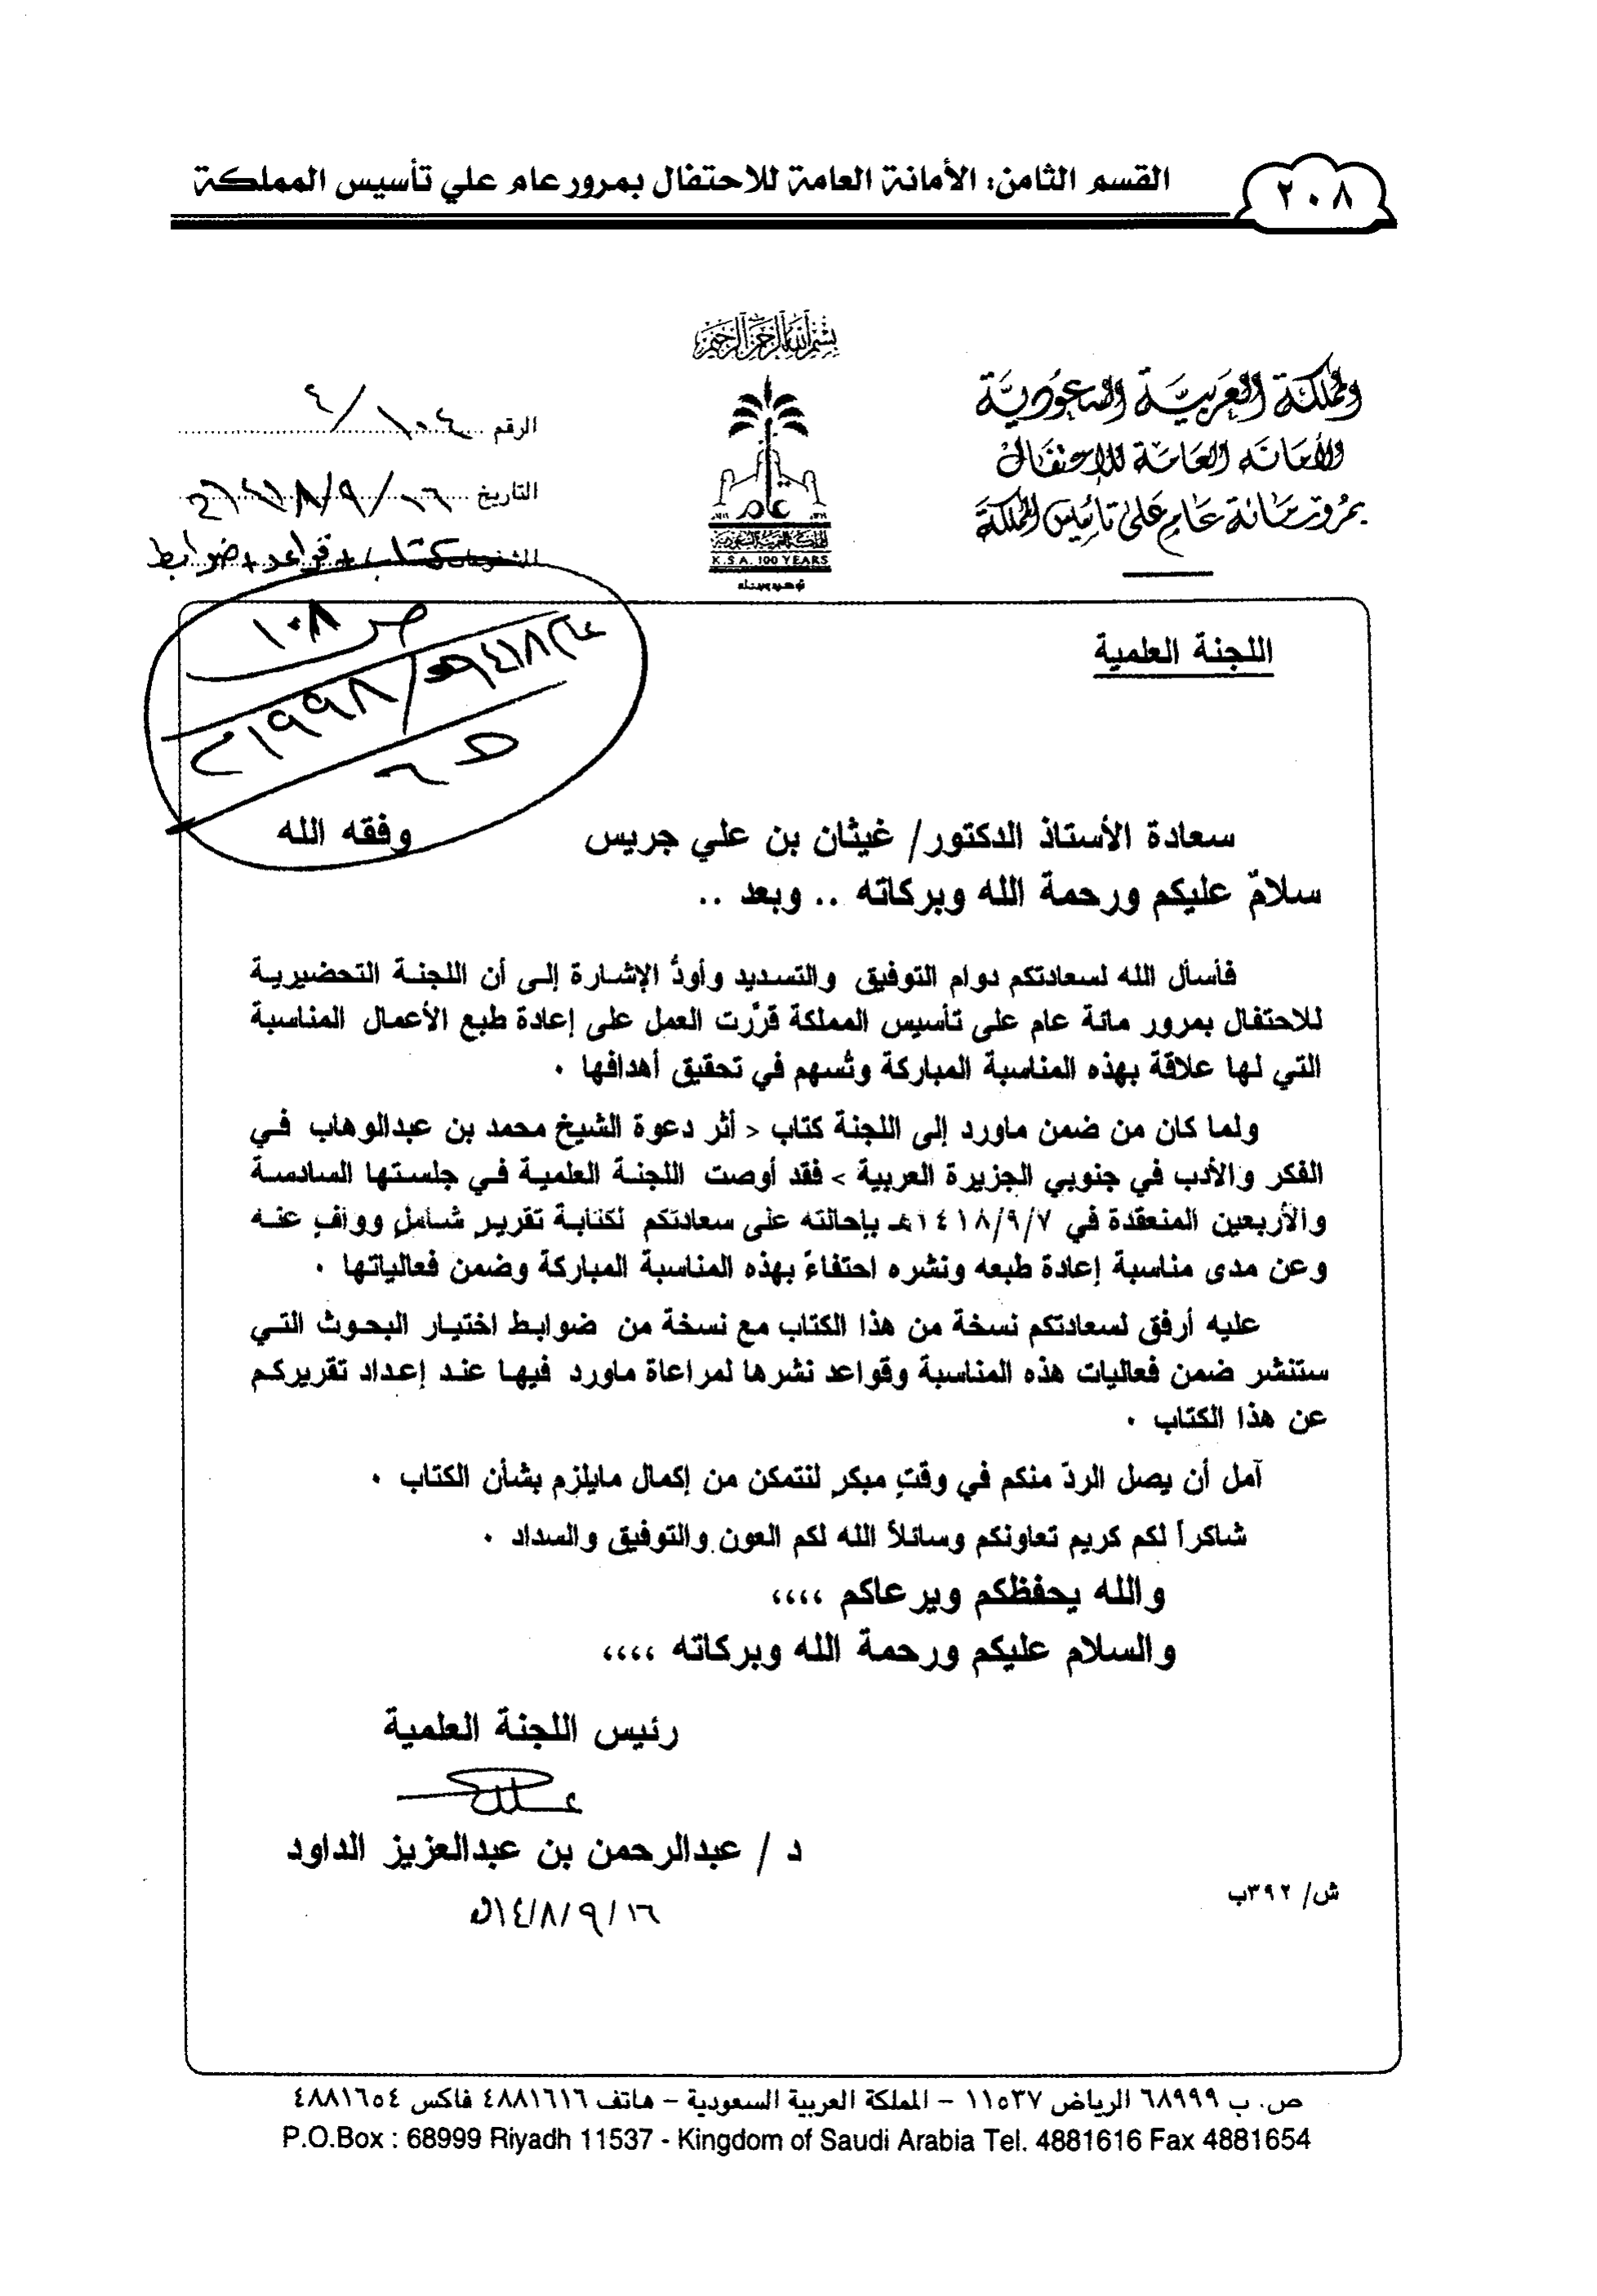 ٢٠٨
القسم الثامن: الأمانة العامة للاحتفال بمرور عام علي تأسيس المملكة
بسم الله الرحمن الرحيم
المملكة العربية السعودية
الأمانة العامة للاحتفال
بمرور مائة عام على تأسيس المملكة
K.S.A. 100 YEARS
الرقم ١٠٤/٤
التاريخ ١٦/٩/١٤١٨هـ
كتاب + قواعد + ضوابط
ص ١٠٨
١٤١٨هـ/١٩٩٨م
اللجنة العلمية
سعادة الأستاذ الدكتور/ غيثان بن علي جريس وفقه الله
سلامٌ عليكم ورحمة الله وبركاته .. وبعد ..
فأسأل الله لسعادتكم دوام التوفيق والتسديد وأودُّ الإشارة إلى أن اللجنة التحضيرية
للاحتفال بمرور مائة عام على تأسيس المملكة قرَّرت العمل على إعادة طبع الأعمال المناسبة
التي لها علاقة بهذه المناسبة المباركة وتُسهم في تحقيق أهدافها ٠
ولما كان من ضمن ماورد إلى اللجنة كتاب < أثر دعوة الشيخ محمد بن عبدالوهاب في
الفكر والأدب في جنوبي الجزيرة العربية > فقد أوصت اللجنة العلمية في جلستها السادسة
والأربعين المنعقدة في ١٤١٨/٩/٧هـ بإحالته على سعادتكم لكتابة تقرير شامل ووافٍ عنه
وعن مدى مناسبة إعادة طبعه ونشره احتفاءً بهذه المناسبة المباركة وضمن فعالياتها ٠
عليه أرفق لسعادتكم نسخة من هذا الكتاب مع نسخة من ضوابط اختيار البحوث التي
ستنشر ضمن فعاليات هذه المناسبة وقواعد نشرها لمراعاة ماورد فيها عند إعداد تقريركم
عن هذا الكتاب ٠
آمل أن يصل الردّ منكم في وقتٍ مبكر لنتمكن من إكمال مايلزم بشأن الكتاب ٠
شاكراً لكم كريم تعاونكم وسائلاً الله لكم العون والتوفيق والسداد ٠
والله يحفظكم ويرعاكم ،،،،
والسلام عليكم ورحمة الله وبركاته ،،،،
رئيس اللجنة العلمية
د / عبدالرحمن بن عبدالعزيز الداود
١٦/٩/١٤١٨هـ
ش/ ٣٩٢ب
ص. ب ٦٨٩٩٩ الرياض ١١٥٣٧ - المملكة العربية السعودية - هاتف ٤٨٨١٦١٦ فاكس ٤٨٨١٦٥٤
P.O.Box : 68999 Riyadh 11537 - Kingdom of Saudi Arabia Tel. 4881616 Fax 4881654